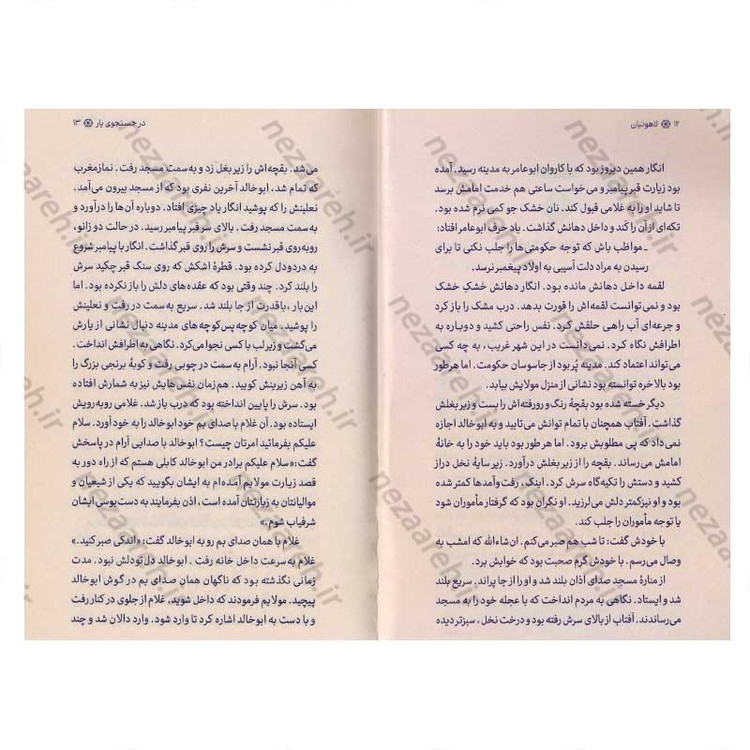 ۱۲ لاهوتیان
انگار همین دیروز بود که با کاروان ابوعامر به مدینه رسید. آمده
بود زیارت قبر پیامبر و می‌خواست ساعتی هم خدمت امامش برسد
تا شاید او را به غلامی قبول کند. نان خشک جو کمی نرم شده بود.
تکه‌ای از آن را کَند و داخل دهانش گذاشت. یاد حرف ابوعامر افتاد:
ـ مواظب باش که توجه حکومتی‌ها را جلب نکنی تا برای
رسیدن به مراد دلت آسیبی به اولاد پیغمبر نرسد.
لقمه داخل دهانش مانده بود. انگار دهانش خشکِ خشک
بود و نمی‌توانست لقمه‌اش را قورت بدهد. درب مشک را باز کرد
و جرعه‌ای آب راهی حلقش کرد. نفس راحتی کشید و دوباره به
اطرافش نگاه کرد. نمی‌دانست در این شهر غریب، به چه کسی
می‌تواند اعتماد کند. مدینه پُر بود از جاسوسان حکومت. اما هرطور
بود بالاخره توانسته بود نشانی از منزل مولایش بیابد.
دیگر خسته شده بود بقچهٔ رنگ و رورفته‌اش را بست و زیر بغلش
گذاشت. آفتاب همچنان با تمام توانش می‌تابید و به ابوخالد اجازه
نمی‌داد که پی مطلوبش برود. اما هرطور بود باید خود را به خانهٔ
امامش می‌رساند. بقچه را از زیر بغلش درآورد. زیر سایهٔ نخل دراز
کشید و دستش را تکیه‌گاه سرش کرد. اینک، رفت و آمدها کمتر شده
بود و او نیز کمتر دلش می‌لرزید. او نگران بود که گرفتار مأموران شود
یا توجه مأموران را جلب کند.
با خودش گفت: تا شب هم صبر می‌کنم. ان‌شاءالله که امشب به
وصال می‌رسم. با خودش گرم صحبت بود که خوابش برد.
از منارهٔ مسجد صدای اذان بلند شد و او را از جا پراند. سریع بلند
شد و ایستاد. نگاهی به مردم انداخت که با عجله خود را به مسجد
می‌رساندند. آفتاب از بالای سرش رفته بود و درخت نخل، سبزتر دیده
در جستجوی یار ۱۳
می‌شد. بقچه‌اش را زیر بغل زد و به سمت مسجد رفت. نماز مغرب
که تمام شد. ابوخالد آخرین نفری بود که از مسجد بیرون می‌آمد.
نعلینش را که پوشید انگار یاد چیزی افتاد. دوباره آن‌ها را درآورد و
به سمت مسجد رفت. بالای سر قبر پیامبر رسید. در حالت دو زانو،
روبه‌روی قبر نشست و سرش را روی قبر گذاشت. انگار با پیامبر شروع
به درددل کرده بود. قطرهٔ اشکش که روی سنگ قبر چکید سرش
را بلند کرد. چند وقتی بود که عقده‌های دلش را باز نکرده بود. اما
این بار، باقدرت از جا بلند شد. سریع به سمت در رفت و نعلینش
را پوشید. میان کوچه پس‌کوچه‌های مدینه دنبال نشانی از یارش
می‌گشت و زیر لب با کسی نجوا می‌کرد. نگاهی به اطرافش انداخت.
کسی آنجا نبود. آرام به سمت در چوبی رفت و کوبهٔ برنجی بزرگ را
به آهن زیرینش کوبید. هم‌زمان نفس‌هایش نیز به شمارش افتاده
بود. سرش را پایین انداخته بود که درب باز شد. غلامی روبه‌رویش
ایستاده بود. آن غلام با صدای بم خود ابوخالد را به خود آورد. سلام
علیکم بفرمائید امرتان چیست؟ ابوخالد با صدایی آرام در پاسخش
گفت: «سلام علیکم برادر من ابوخالد کابلی هستم که از راه دور به
قصد زیارت مولایم آمده‌ام به ایشان بگویید که یکی از شیعیان و
موالیانتان به زیارتتان آمده است، اذن بفرمایند به دست‌بوسی ایشان
شرفیاب شوم.»
غلام با همان صدای بم رو به ابوخالد گفت: «اندکی صبر کنید.»
غلام به سرعت داخل خانه رفت. ابوخالد دل تو دلش نبود. مدت
زمانی نگذشته بود که ناگهان همان صدای بم در گوش ابوخالد
پیچید. مولایم فرمودند که داخل شوید. غلام از جلوی در کنار رفت
و با دست به ابوخالد اشاره کرد تا وارد شود. وارد دالان شد و چند
nezaareh.ir
nezaareh.ir
nezaareh.ir
nezaareh.ir
nezaareh.ir
nezaareh.ir